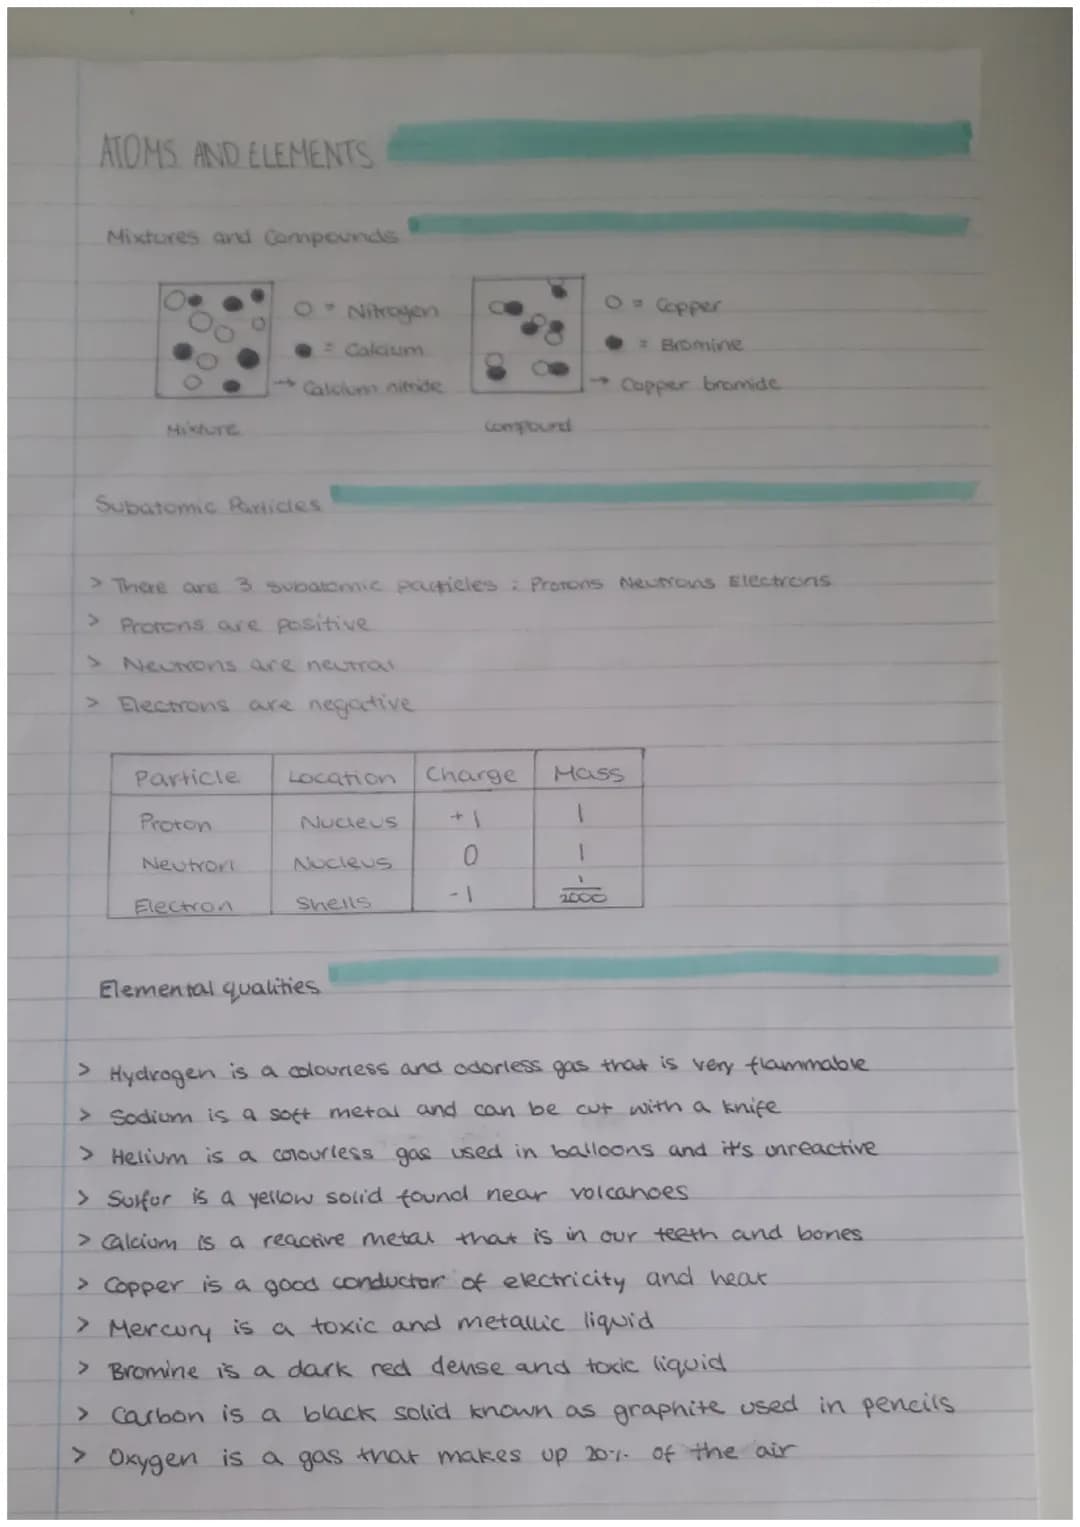 ATOMS AND ELEMENTS
Mixtures and Compounds
O = Nitrogen
● = Calcium
→ Calcium nitride
Mixture
O = Copper
● = Bromine
→ Copper bromide
Compound
Subatomic Particles
> There are 3 subatomic particles : Protons Neutrons Electrons
> Protons are positive
> Neutrons are neutral
> Electrons are negative
Particle Location Charge Mass
Proton Nucleus +1 1
Neutron Nucleus 0 1
Electron Shells -1 1/2000
Elemental qualities
> Hydrogen is a colourless and odorless gas that is very flammable
> Sodium is a soft metal and can be cut with a knife
> Helium is a colourless gas used in balloons and it's unreactive
> Sulfur is a yellow solid found near volcanoes
> Calcium is a reactive metal that is in our teeth and bones
> Copper is a good conductor of electricity and heat
> Mercury is a toxic and metallic liquid
> Bromine is a dark red dense and toxic liquid
> Carbon is a black solid known as graphite used in pencils
> Oxygen is a gas that makes up 20% of the air